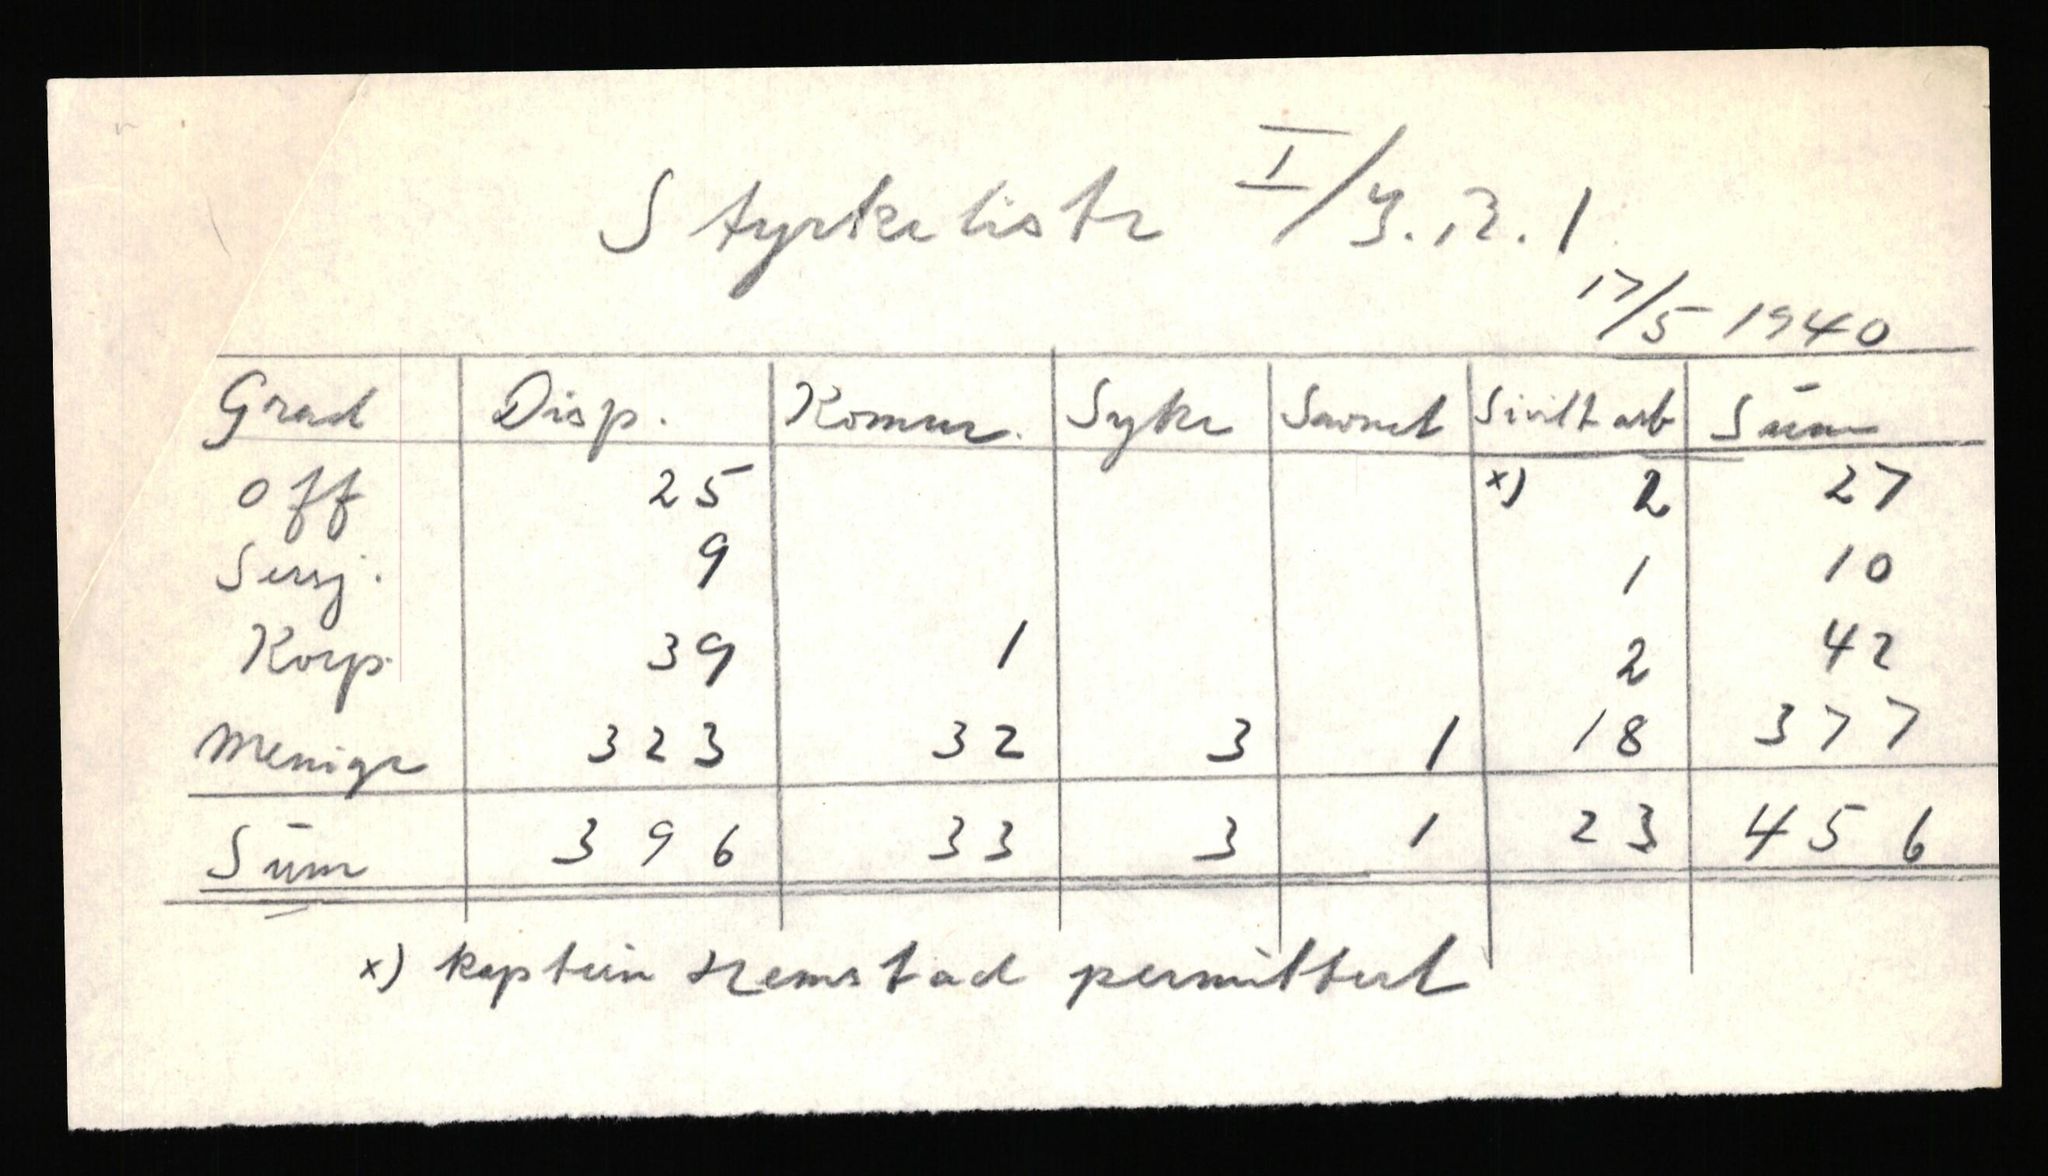 Styrkeliste I/J.R.1
17/5 1940
Grad Disp. Komm. Syke Savnet Siviltarb Sum
Off 25 x) 2 27
Sersj. 9 1 10
Korp. 39 1 2 42
Menige 323 32 3 1 18 377
Sum 396 33 3 1 23 456
x) kaptein Hemstad permittert